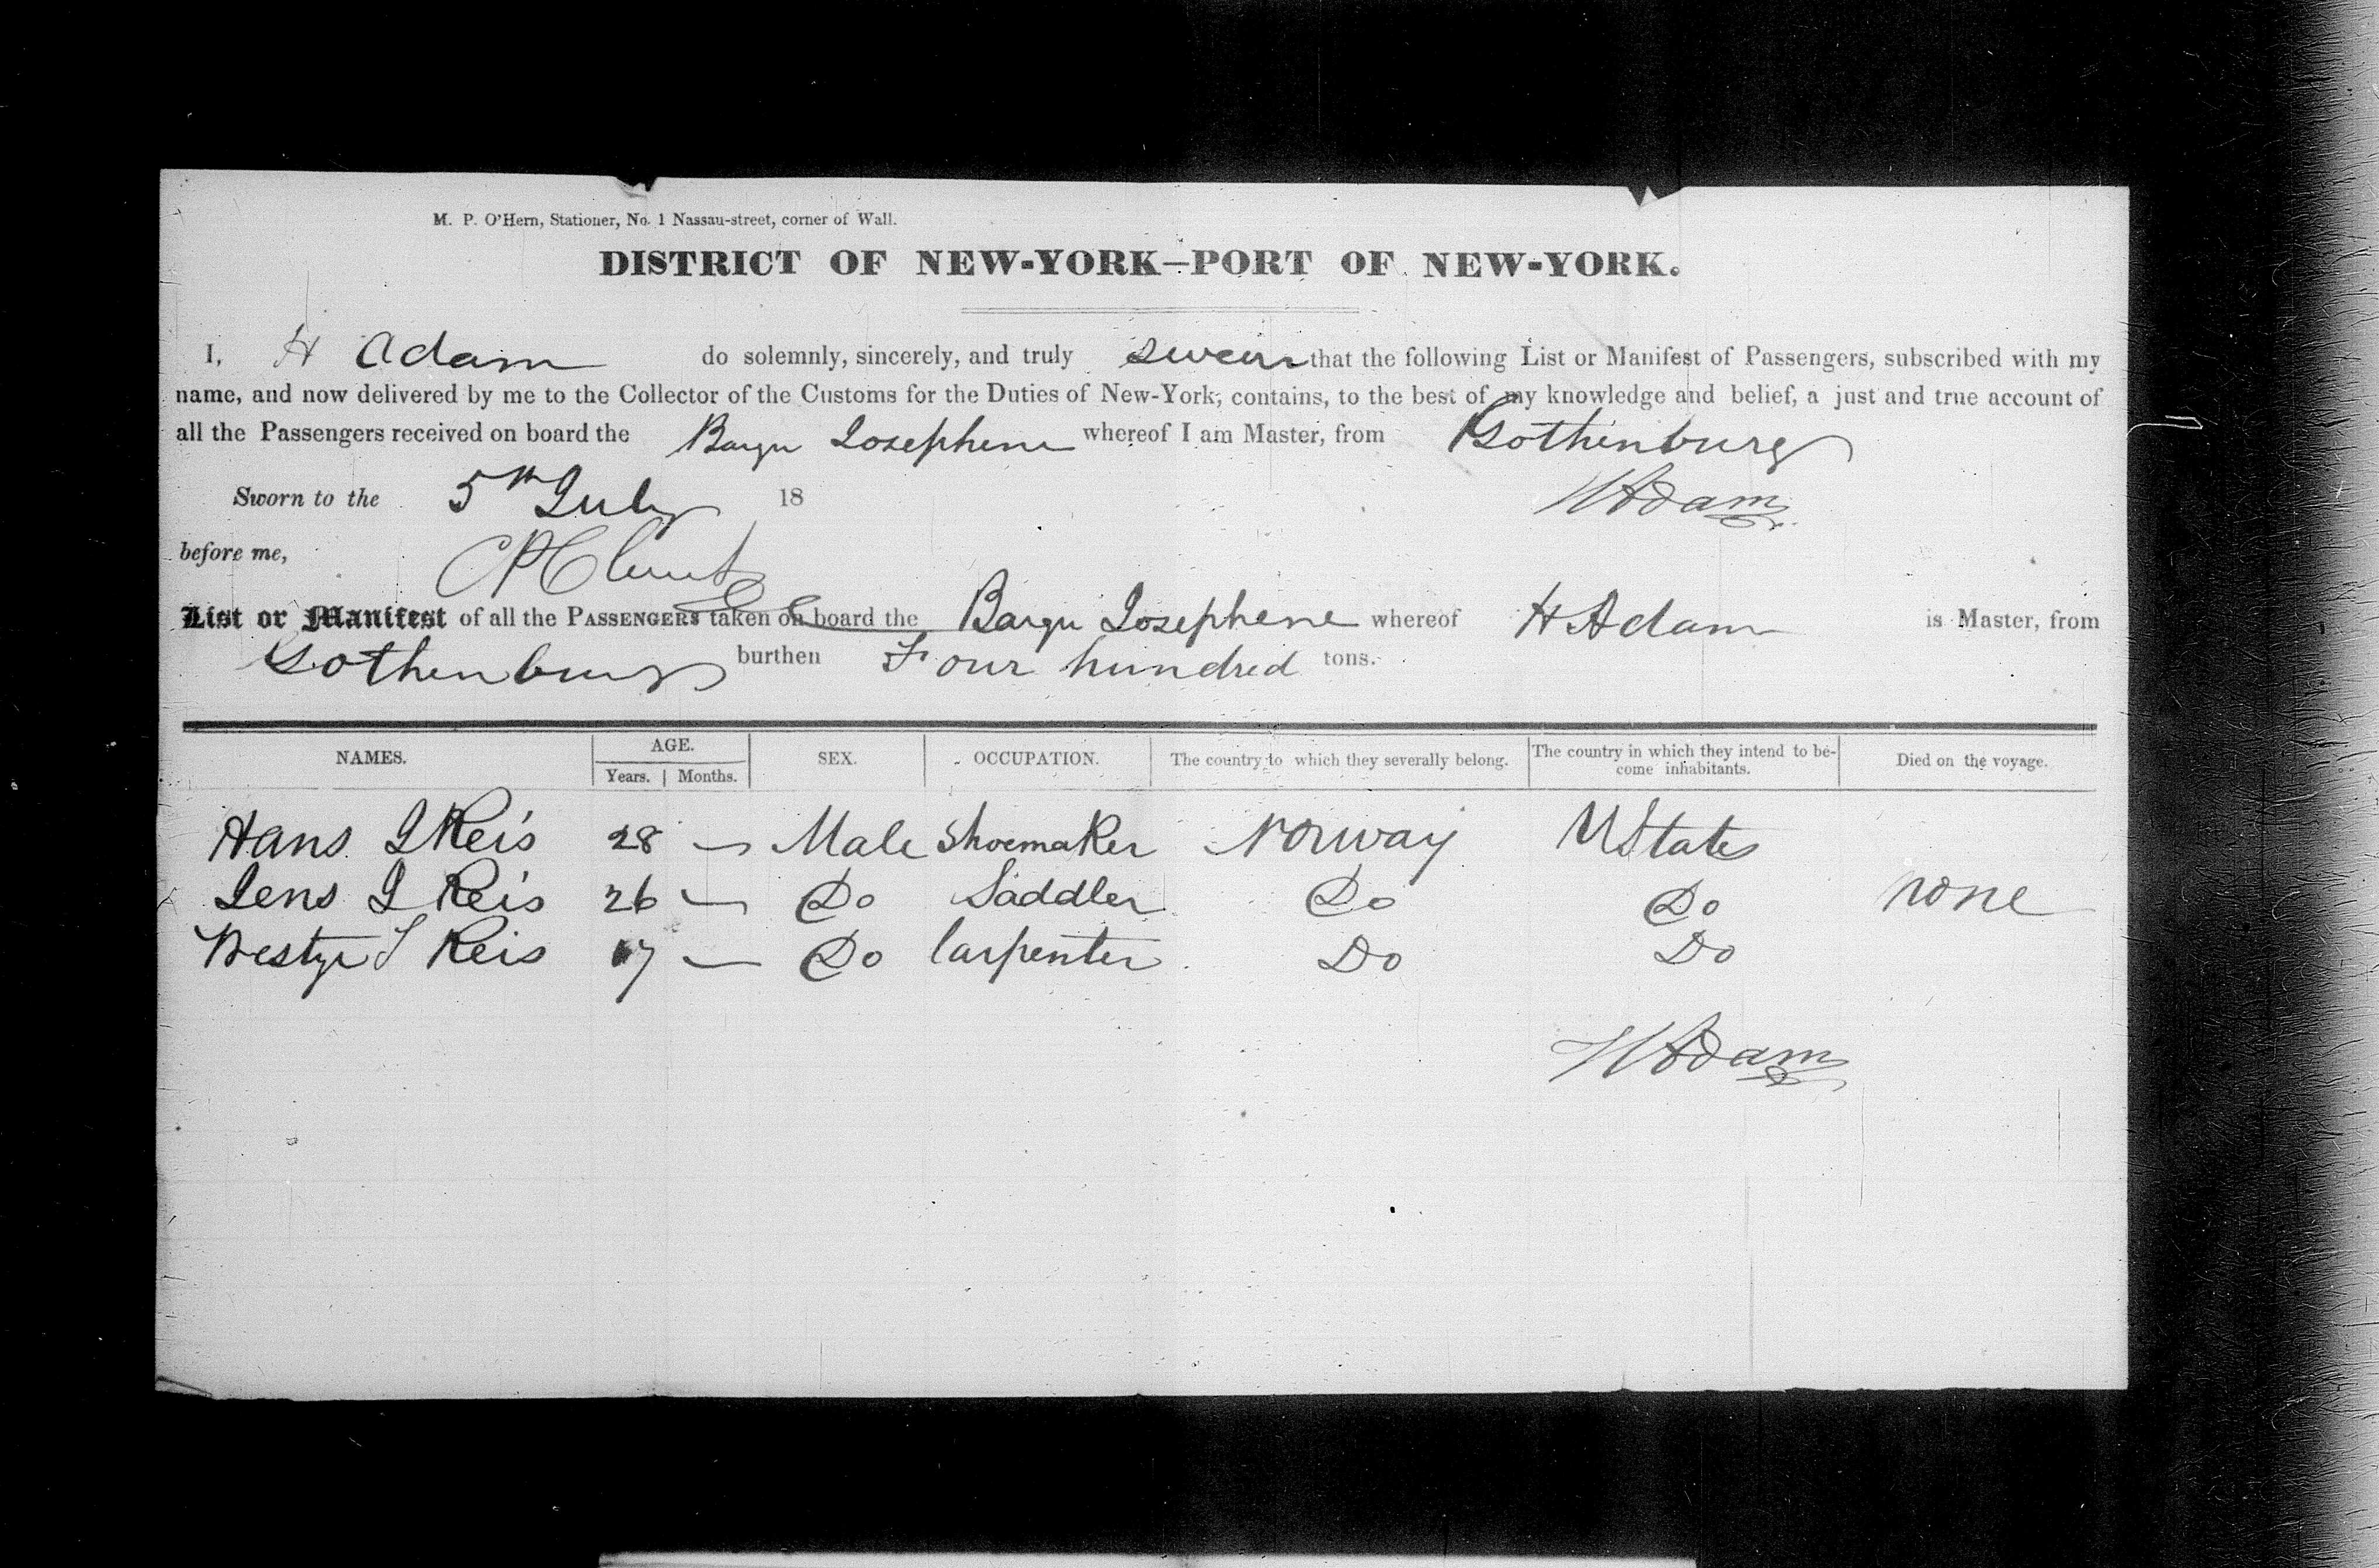 M. P. O'Hern, Stationer, No. 1 Nassau-street, corner of Wall.
DISTRICT OF NEW-YORK—PORT OF NEW-YORK.
I, H Adam do solemnly, sincerely, and truly swear that the following List or Manifest of Passengers, subscribed with my
name, and now delivered by me to the Collector of the Customs for the Duties of New-York, contains, to the best of my knowledge and belief, a just and true account of
all the Passengers received on board the Barque Josephene whereof I am Master, from Gothenburg
Sworn to the 5th July 18 HAdam
before me,
List or Manifest of all the PASSENGERS taken on board the Barque Josephene whereof H Adam is Master, from
Gothenburg burthen Four hundred tons.
NAMES. AGE. SEX. OCCUPATION. The country to which they severally belong. The country in which they intend to be-
come inhabitants. Died on the voyage.
Years. Months.
Hans J Reis 28 — Male Shoemaker Norway UStates
Jens J Reis 26 — Do Saddler Do Do none
Reis 17 — Do Carpenter Do Do
HAdam